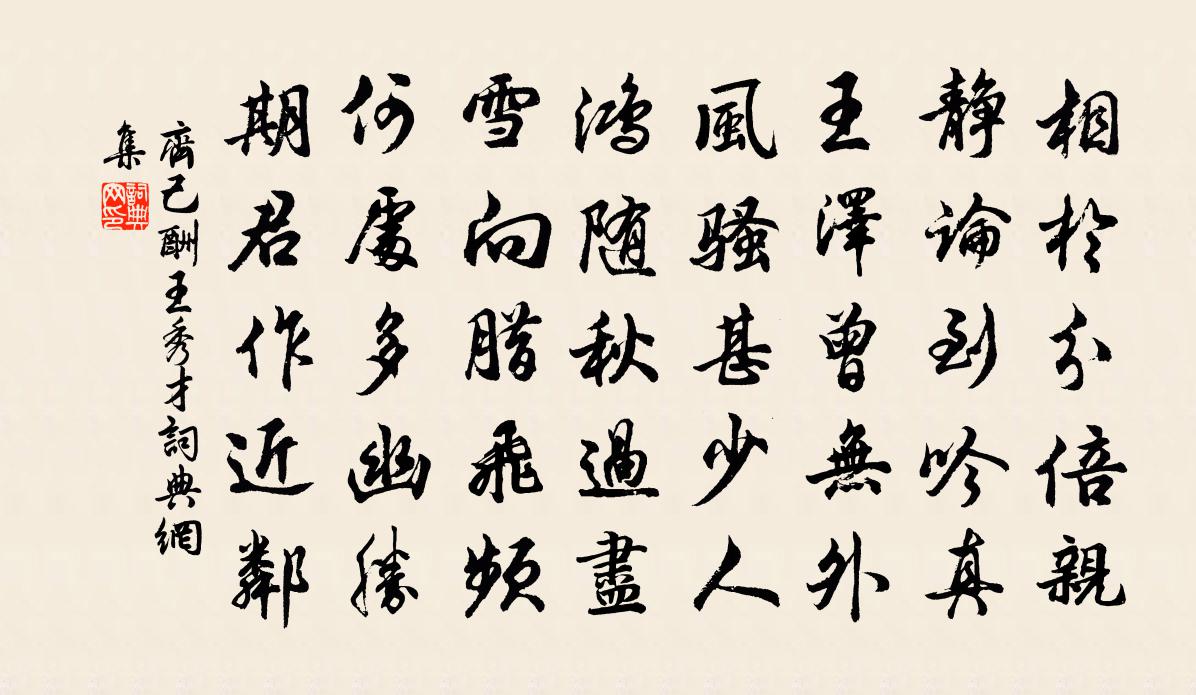 相於分倍親
靜論到吟真
王澤曾無外
風騷甚少人
鴻随秋過盡
雪向腊飛頻
何處多幽勝
期君作近鄰
齊己酬王秀才詞典網
集
詞典
网印